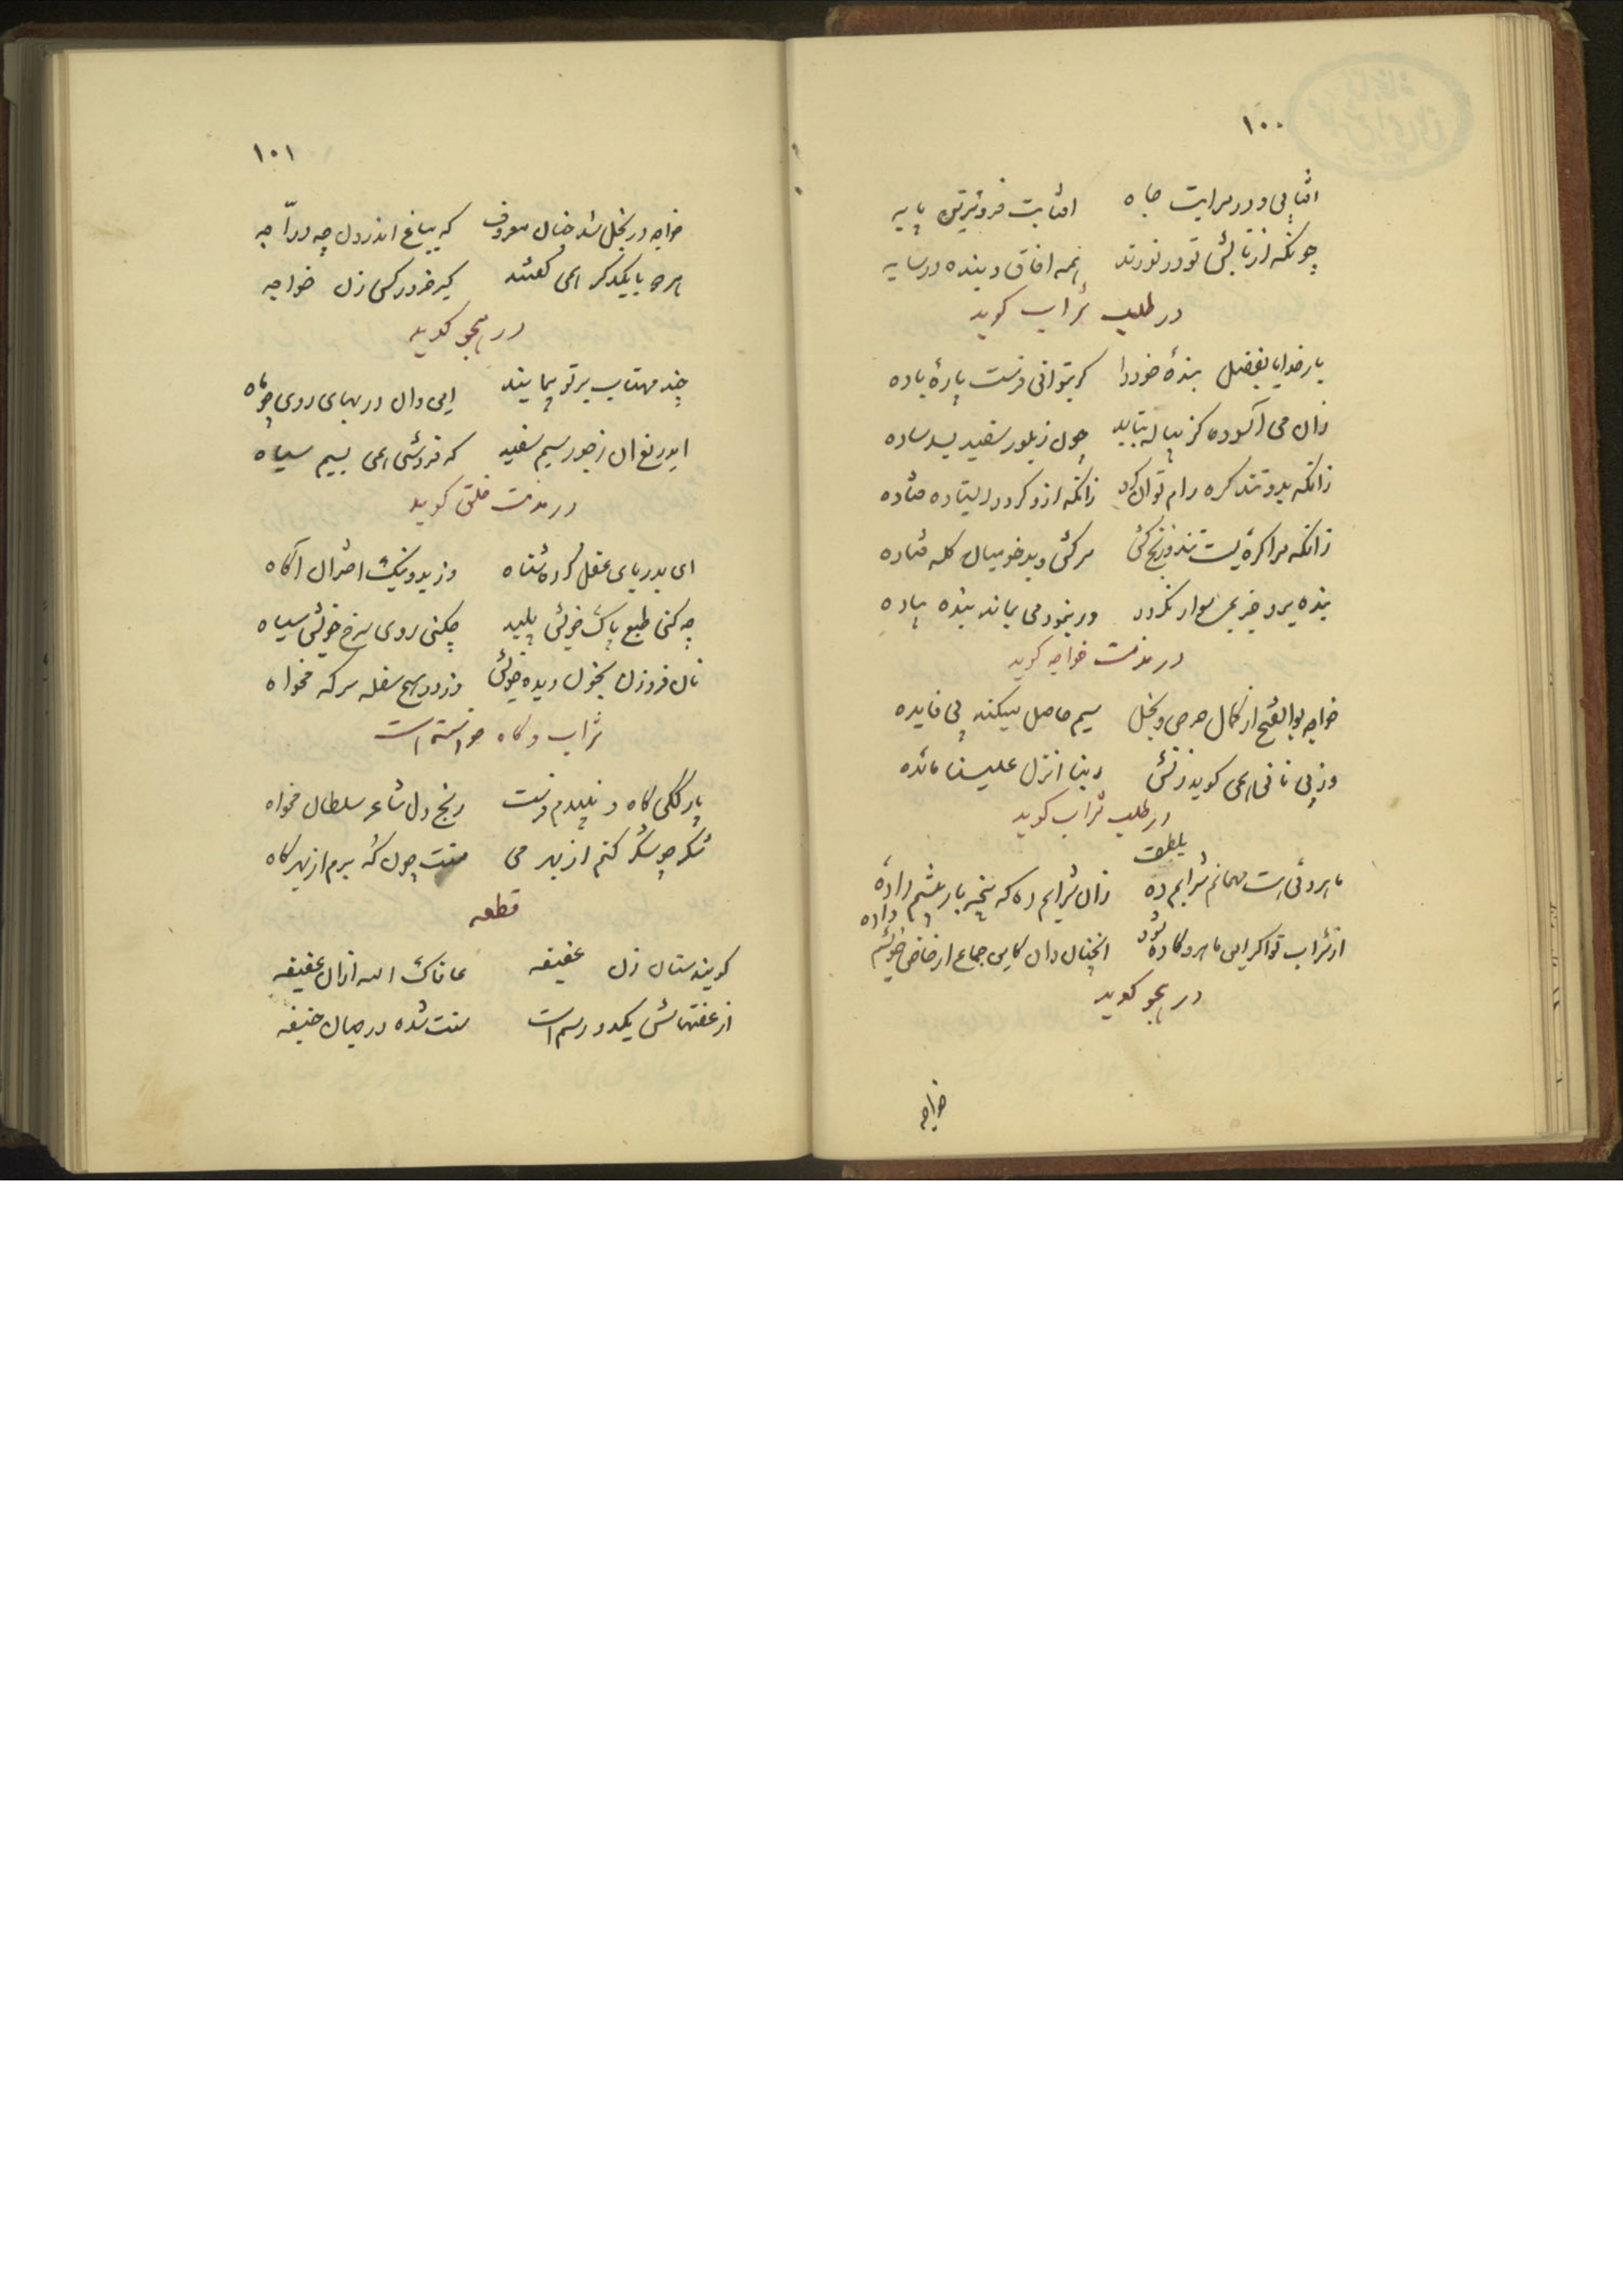 ۱۰۰
افتابی و در سرایت جاه افتابت فروترین پایه
چونکه از تابش تو در نورند همه افاق و بنده در سایه
در طلب شراب کوید
بار خدایا بفضل بندهٔ خود را کر بتوانی فرست پارهٔ باده
زان می آسوده کز پیاله بتابد چون ز بلور سفید بسد ساده
زانکه بدو تند کره رام توان کرد زانکه ازو کردد ایستاده فتاده
زانکه مرا کرهٔ ایست تند و ترنج کش سرکش و بدخو میان کله فتاده
بنده برو جز بمی سوار نکردد ور نبود می بماند بنده پیاده
در مذمت خواجه کوید
خواجه بوالفتح از کمال حرص و بخل سیم حاصل میکند بی فایده
وز پی نانی همی کوید زنش ربنا انزل علینا مائده
در طلب شراب کوید
ماهروئی است مهمانم شرابم ده بلطف زان شرابم ده که
از شراب تو اکر این ماهرو کاده شود انچنان دان کاین جماع از خاص خویشم داده
در هجو کوید
خواجه
۱۰۱
خواجه در بخل شد چنان معروف که بباغ اندرون چه دراجه
هرچه با یکدکر همی کفتند کیر خر در کس زن خواجه
در هجو کوید
چند مهتاب بر تو پیمایند این و آن در بهای روی چو ماه
ای دریغ آن بر چو سیم سفید که فروشی همی بسیم سیاه
در مذمت خلق کوید
ای بدریای عقل کرده شناه وز بد و نیک اختران آکاه
چه کنی طبع پاک خویش پلید چکنی روی سرخ خویش سیاه
نان فرو زن بخون دیده خویش وز در هیچ سفله سرکه مخواه
شراب و کاه خواسته است
بارککی کاه و نبیدم فرست رنج دل شاعر سلطان مخواه
شکر چو شکر کنم از بهر می منت چون که برم از بهر کاه
قطعه
کویند ستان زن عفیفه عافاک الله ازان عفیفه
از عفتهاش یکدو رسم است سنت شده در میان حنیفه